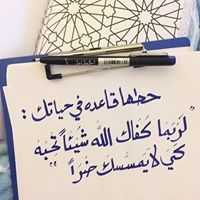 حطها قاعده في حياتك :
"لربما كفاك الله شيئاً تحبه
كي لا يمسسك ضراً"